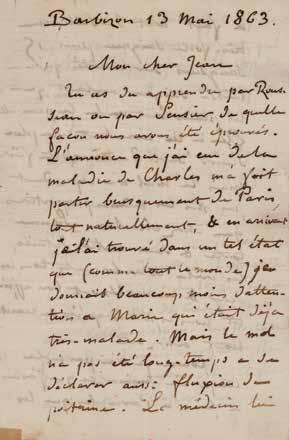 Barbizon 13 Mai 1863.
Mon cher Jean
Tu as du apprendre par Rous-
seau ou par Sensier de quelle
façon nous avons été éprouvés.
L'annonce que j'ai eue de la
maladie de Charles m'a fait
partir brusquement de Paris
tout naturellement, & en arrivant
je l'ai trouvé dans un tel état
que (comme tout le monde) je
donnait beaucoup moins d'atten-
tion a Marie qui était déja
très-malade. Mais le mal
n'a pas été long-temps a se
déclarer aussi: fluxion de
poitrine. Le médecin lui